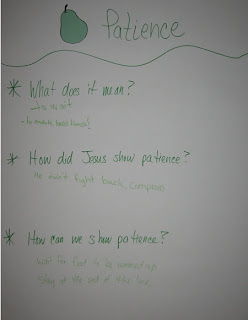 Patience
* What does it mean?
- to
- to
* How did Jesus show patience?
He didn't fight back, complain
* How can we show patience?
wait for food
stay at the end of the line